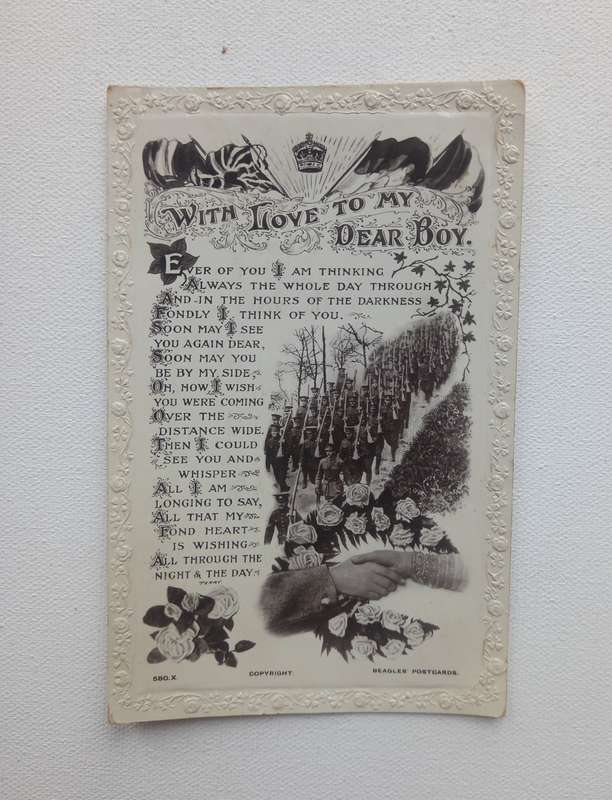 WITH LOVE TO MY
DEAR BOY.
EVER OF YOU I AM THINKING
ALWAYS THE WHOLE DAY THROUGH
AND IN THE HOURS OF THE DARKNESS
FONDLY I THINK OF YOU.
SOON MAY I SEE
YOU AGAIN DEAR,
SOON MAY YOU
BE BY MY SIDE
OH, HOW I WISH
YOU WERE COMING
OVER THE
DISTANCE WIDE.
THEN I COULD
SEE YOU AND
WHISPER
ALL I AM
LONGING TO SAY,
ALL THAT MY
FOND HEART
IS WISHING
ALL THROUGH THE
NIGHT & THE DAY.
580.X.
COPYRIGHT.
BEAGLES' POSTCARDS.